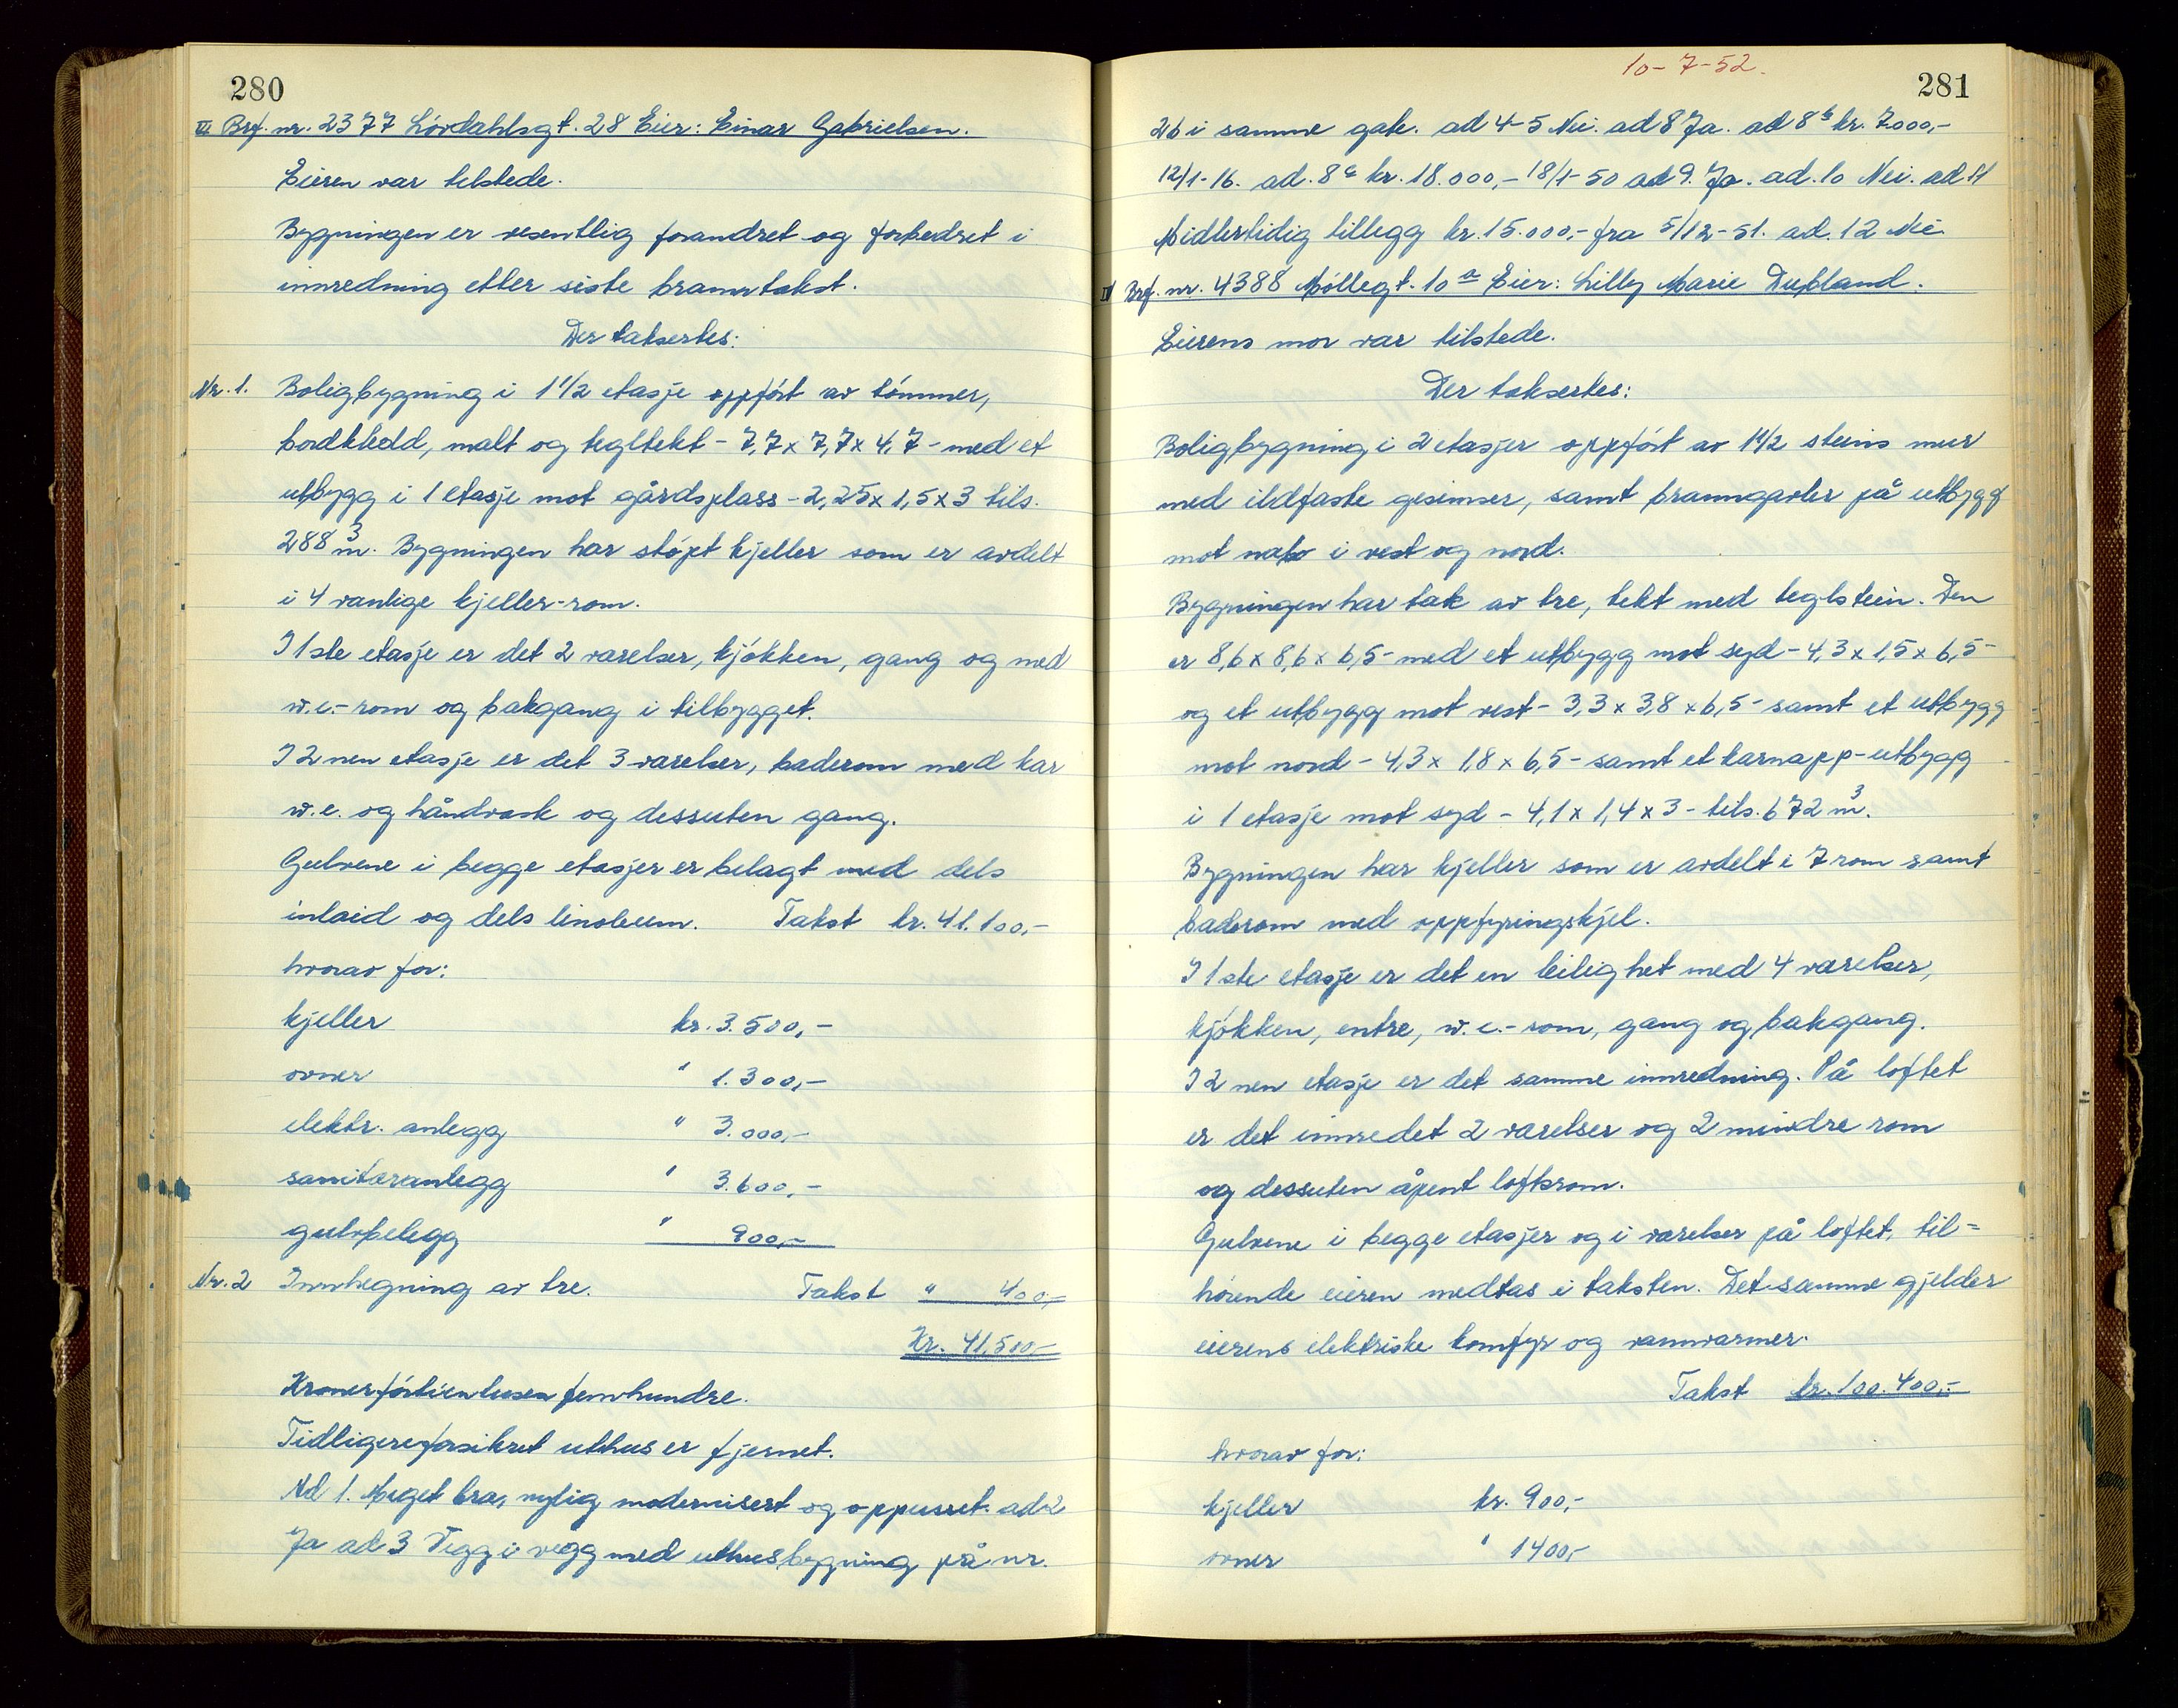 280
III Brf. nr. 2377 Lövdahlsgt. 28 Eier: Einar Gabrielsen.
Eieren var tilstede.
Bygningen er vesentlig forandret og forbedret i
innredning etter siste branntakst.
Der taksertes:
Nr. 1. Boligbygning i 1 1/2 etasje oppfört av tömmer,
bordkledd, malt og tegltekt - 7,7 x 7,7 x 4,7 - med et
utbygg i 1 etasje mot gårdsplass - 2,25 x 1,5 x 3 tils.
288 m³. Bygningen har stöpt kjeller som er avdelt
i 4 vanlige kjeller-rom.
I 1ste etasje er det 2 værelser, kjökken, gang og med
w.c.-rom og bakgang i tilbygget.
I 2nen etasje er det 3 værelser, baderom med kar
w.c. og håndvask og dessuten gang.
Gulvene i begge etasjer er belagt med dels
inlaid og dels linoleum. Takst kr. 41.100,-
hvorav for:
kjeller kr. 3.500,-
ovner " 1.300,-
elektr. anlegg " 3.000,-
sanitæranlegg " 3.600,-
gulvbelegg " 900,-
Nr. 2 Innhegning av tre. Takst " 400,-
Kr. 41.500,-
Kroner förtientusen femhundre.
Tidligere forsikret uthus er fjernet.
Ad 1. Meget bra, nylig modernisert og oppusset. ad 2
Ja ad 3 Vegg i vegg med uthusbygning på nr.
10-7-52.
281
26 i samme gate. ad 4-5 Nei. ad 8 Ja. ad 8 b kr. 7.000,-
12/1-16. ad. 8 c kr. 18.000,- 18/1-50 ad 9. Ja. ad. 10 Nei. ad 11
Midlertidig tillegg kr. 15.000,- fra 5/12-51. ad. 12 Nei.
IV Brf. nr. 4388 Möllegt. 10 a Eier: Lilly Marie Dubland.
Eierens mor var tilstede.
Der taksertes:
Boligbygning i 2 etasjer oppfört av 1 1/2 steins mur
med ildfaste gesimser, samt branngavler på utbygg
mot nabo i vest og nord.
Bygningen har tak av tre, tekt med teglstein. Den
er 8,6 x 8,6 x 6,5 - med et utbygg mot syd - 4,3 x 1,5 x 6,5 -
og et utbygg mot vest - 3,3 x 3,8 x 6,5 - samt et utbygg
mot nord - 4,3 x 1,8 x 6,5 - samt et karnapp-utbygg
i 1 etasje mot syd - 4,1 x 1,4 x 3 - tils. 672 m³.
Bygningen har kjeller som er avdelt i 7 rom samt
baderom med oppfyringskjel.
I 1ste etasje er det en leilighet med 4 værelser,
kjökken, entre, w.c.-rom, gang og bakgang.
I 2nen etasje er det samme innredning. På loftet
er det innredet 2 værelser og 2 mindre rom
og dessuten åpent loftsrom.
Gulvene i begge etasjer og i værelser på loftet, til=
hørende eieren medtas i taksten. Det samme gjelder
eierens elektriske komfyr og vannvarmer.
Takst kr. 100.400,-
hvorav for:
kjeller kr. 900,-
ovner " 1400,-